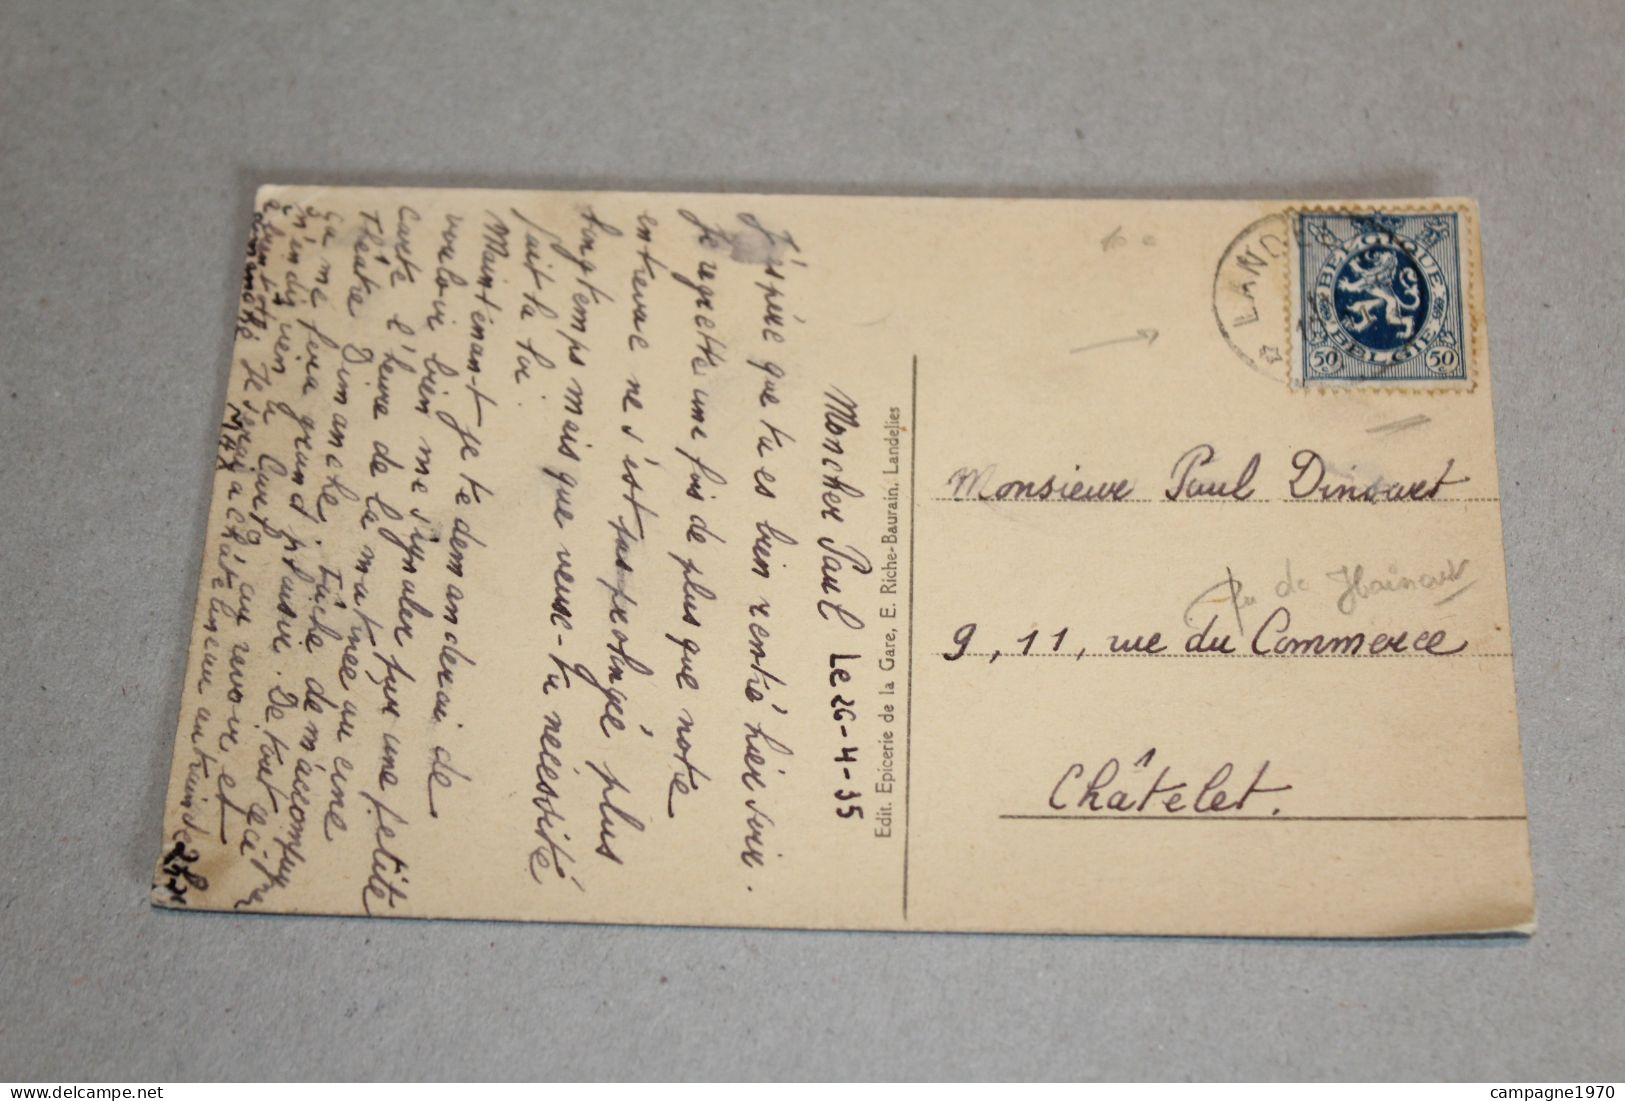 Moncher Paul Le 26-4-35
J'éspére que tu es bien rentré hier soir.
Je regrette une fois de plus que notre
entrevue ne s'est pas prolongée plus
longtemps mais que veux-tu nécessité
fait la loi.
Maintenant je te demanderai de
vouloir bien me signaler sur une petite
carte l'heure de la matinée au ciné
Théatre Dimanche. Tâche de m'accompagner
ça me fera grand plaisir. De tout
rien à au revoir et
à bientôt
Je serai à Châtelineau au train de 2h
Edit. Epicerie de la Gare, E. Riche-Baurain, Landelies
LAND
BELGIQUE
BELGIË
50 50
Monsieur Paul Dinsart
rue de Hainaut
9, 11, rue du Commerce
Châtelet.
www.delcampe.net
campagne1970